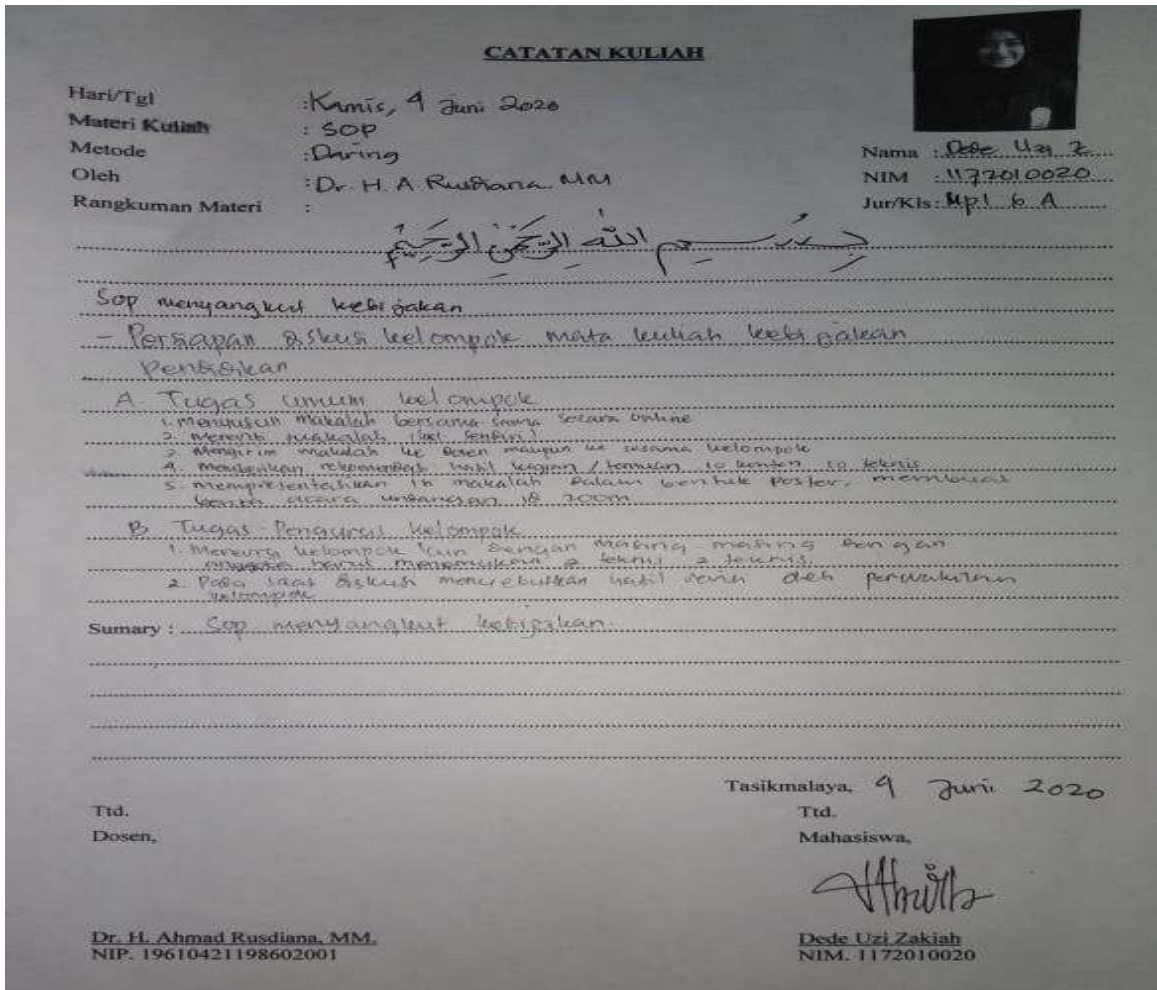 CATATAN KULIAH
Hari/Tgl : Kamis, 4 Juni 2020
Materi Kuliah : SOP
Metode : Daring
Oleh : Dr. H. A. Rusdiana MM
Rangkuman Materi :
Nama : Dede Uzi Z
NIM : 1172010020
Jur/Kls : MPI 6 A
بسم الله الرحمن الرحيم
Sop menyangkut kebijakan
- Persiapan diskusi kelompok mata kuliah kebijakan
Pendidikan
A. Tugas umum kelompok
1. menyusun makalah bersama-sama secara online
2. Mereviu makalah kel sendiri
3. Mengirim makalah ke dosen maupun ke sesama kelompok
4. memberikan rekomendasi hasil kajian / temuan 10 konten 10 teknis
5. mempresentasikan makalah dalam bentuk poster, membuat
berita acara undangan zoom
B. Tugas Pengurus kelompok
1. Mereviu kelompok lain dengan masing-masing dengan
anggota harus menemukan 2 teknis
2. Pada saat diskusi menyebutkan hasil reviu oleh perwakilan
kelompok
Sumary : Sop menyangkut kebijakan
Tasikmalaya, 4 Juni 2020
Ttd.
Dosen,
Ttd.
Mahasiswa,
Dr. H. Ahmad Rusdiana, MM.
NIP. 19610421198602001
Dede Uzi Zakiah
NIM. 1172010020